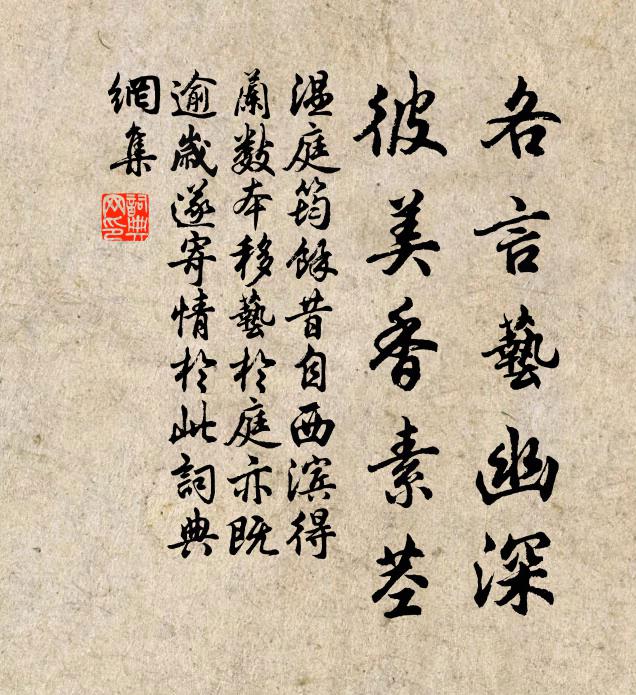 各言藝幽深
彼美香素莖
温庭筠餘昔自西滨得
蘭數本移藝於庭亦既
逾歲遂寄情於此詞典
網集
詞典
网印